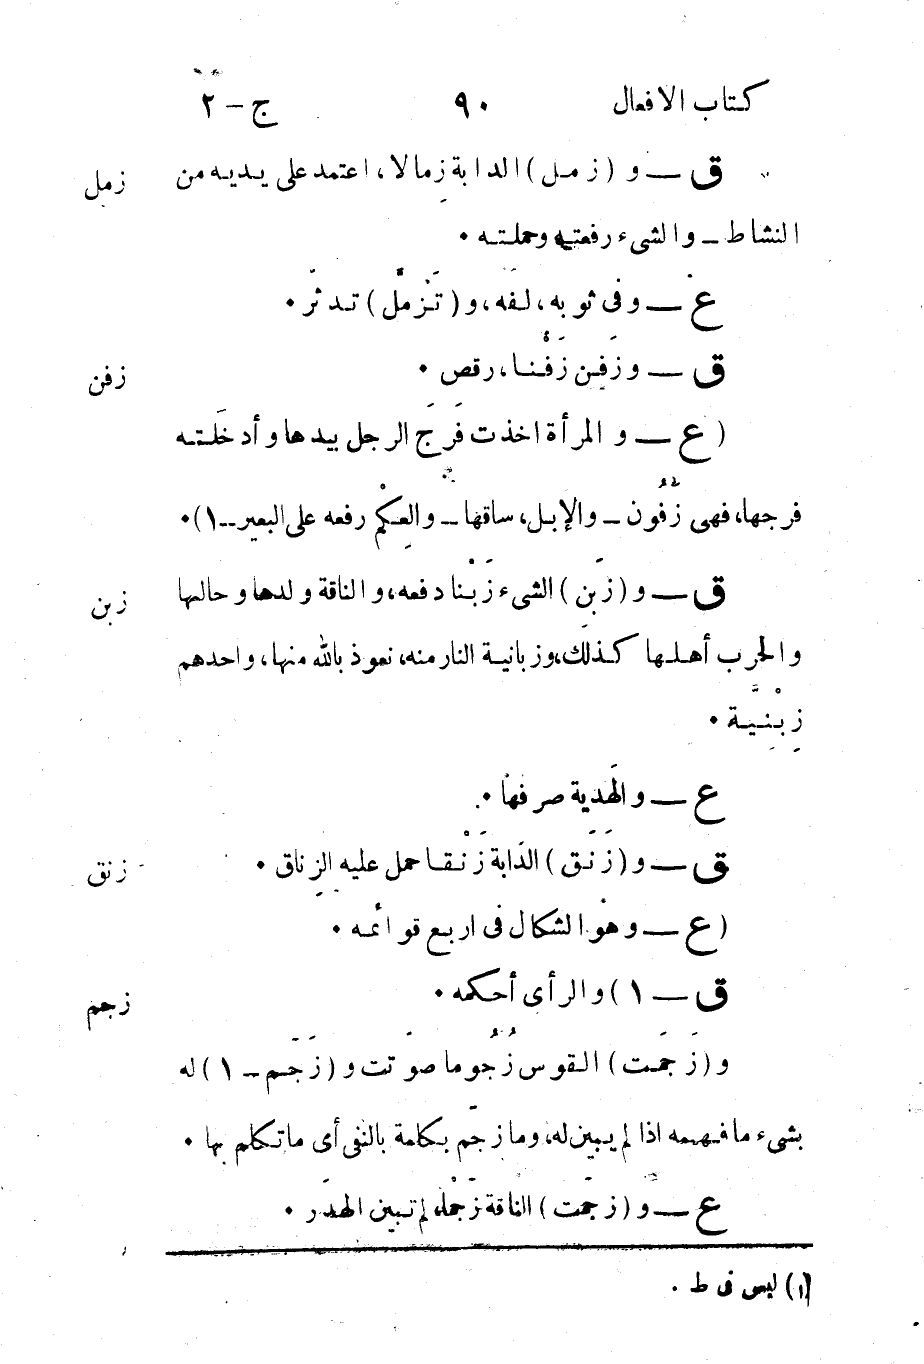 كتاب الافعال ٩٠ ج – ٢
ق – و (زمل) الدابة زمالا، اعتمد على يديه من زمل
النشاط – والشىء رفعته وحملته •
ع – وفى ثوبه، لفه، و (تَزمّل) تدثّر •
ق – وزَفَن زَفْنا، رقص • زفن
(ع – و المرأة اخذت فَرَج الرجل بيدها وأدخَلته
فرجها، فهى زُفُون – والإبل، ساقها – والعِكْم رفعه على البعير – ١) •
ق – و (زَبن) الشىء زَبْنا دفعه، والناقة ولدها وحالبها زبن
والحرب أهلها كذلك، وزبانية النار منه، نعوذ بالله منها، واحدهم
زِبْنِيَّة •
ع – والهَدية صرفها •
ق – و (زَنَق) الدَابة زَنْقا حمل عليه الزِناق • زنق
(ع – وهْوالشكال فى اربع قوائمه •
ق – ١) والرأى أحكمه • زجم
و (زَجَمت) القوس زُجُوما صوَتت و (زَجَم – ١) له
بشىء ما فهمه اذا لم يبين له، وما زجَم بكلمة بالنفى أى ما تكلم بها •
ع – و (زجَمت) الناقة زَجْمة، لم تبين الهدَر •
(١) ليس فى ط .